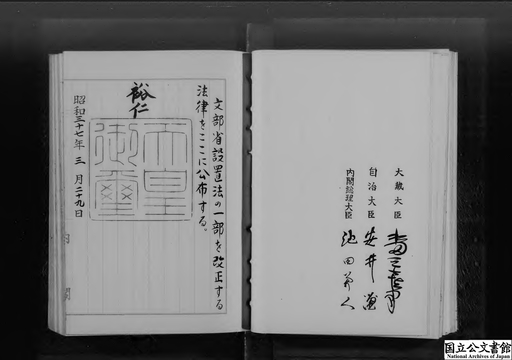 大蔵大臣 水田三喜男
自治大臣 安井謙
内閣総理大臣 池田勇人
文部省設置法の一部を改正する
法律をここに公布する。
裕仁
天皇御璽
昭和三十七年三月二十九日
内閣
国立公文書館
National Archives of Japan